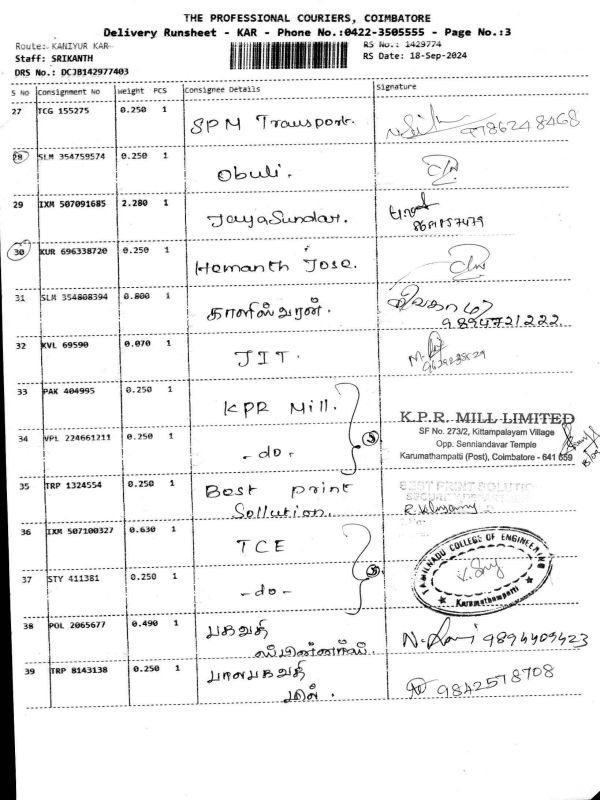 THE PROFESSIONAL COURIERS, COIMBATORE
Delivery Runsheet - KAR - Phone No.:0422-3505555 - Page No.:3
Route: KANIYUR KAR
RS No.: 1429774
Staff: SRIKANTH
RS Date: 18-Sep-2024
DRS No.: DCJB142977403
S No Consignment No Weight PCS Consignee Details Signature
27 TCG 155275 0.250 1 SPM Transport. 9786248468
28 SLM 354759574 0.250 1 Obuli.
29 IXM 507091685 2.280 1 JayaSundar.
30 KUR 696338720 0.250 1 Hemanth Jose.
31 SLM 354808394 0.800 1 காளீஸ்வரன்.
9894721222
32 KVL 69590 0.070 1 JIT.
33 PAK 404995 0.250 1 KPR Mill.
K.P.R. MILL LIMITED
SF No. 273/2, Kittampalayam Village
34 VPL 224661211 0.250 1 -do- 5
Opp. Senniandavar Temple
Karumathampatti (Post), Coimbatore - 641 659
35 TRP 1324554 0.250 1 Best print
Sollution.
BEST PRINT SOLUTION
36 IXM 507100327 0.630 1 TCE
TAMILNADU COLLEGE OF ENGINEERING
37 STY 411381 0.250 1 -do- 5
Karumathampatti
38 POL 2065677 0.490 1 பகவதி
N. Ravi 9894409423
39 TRP 8143138 0.250 1 பாலபகவதி
மில்.
9842578708